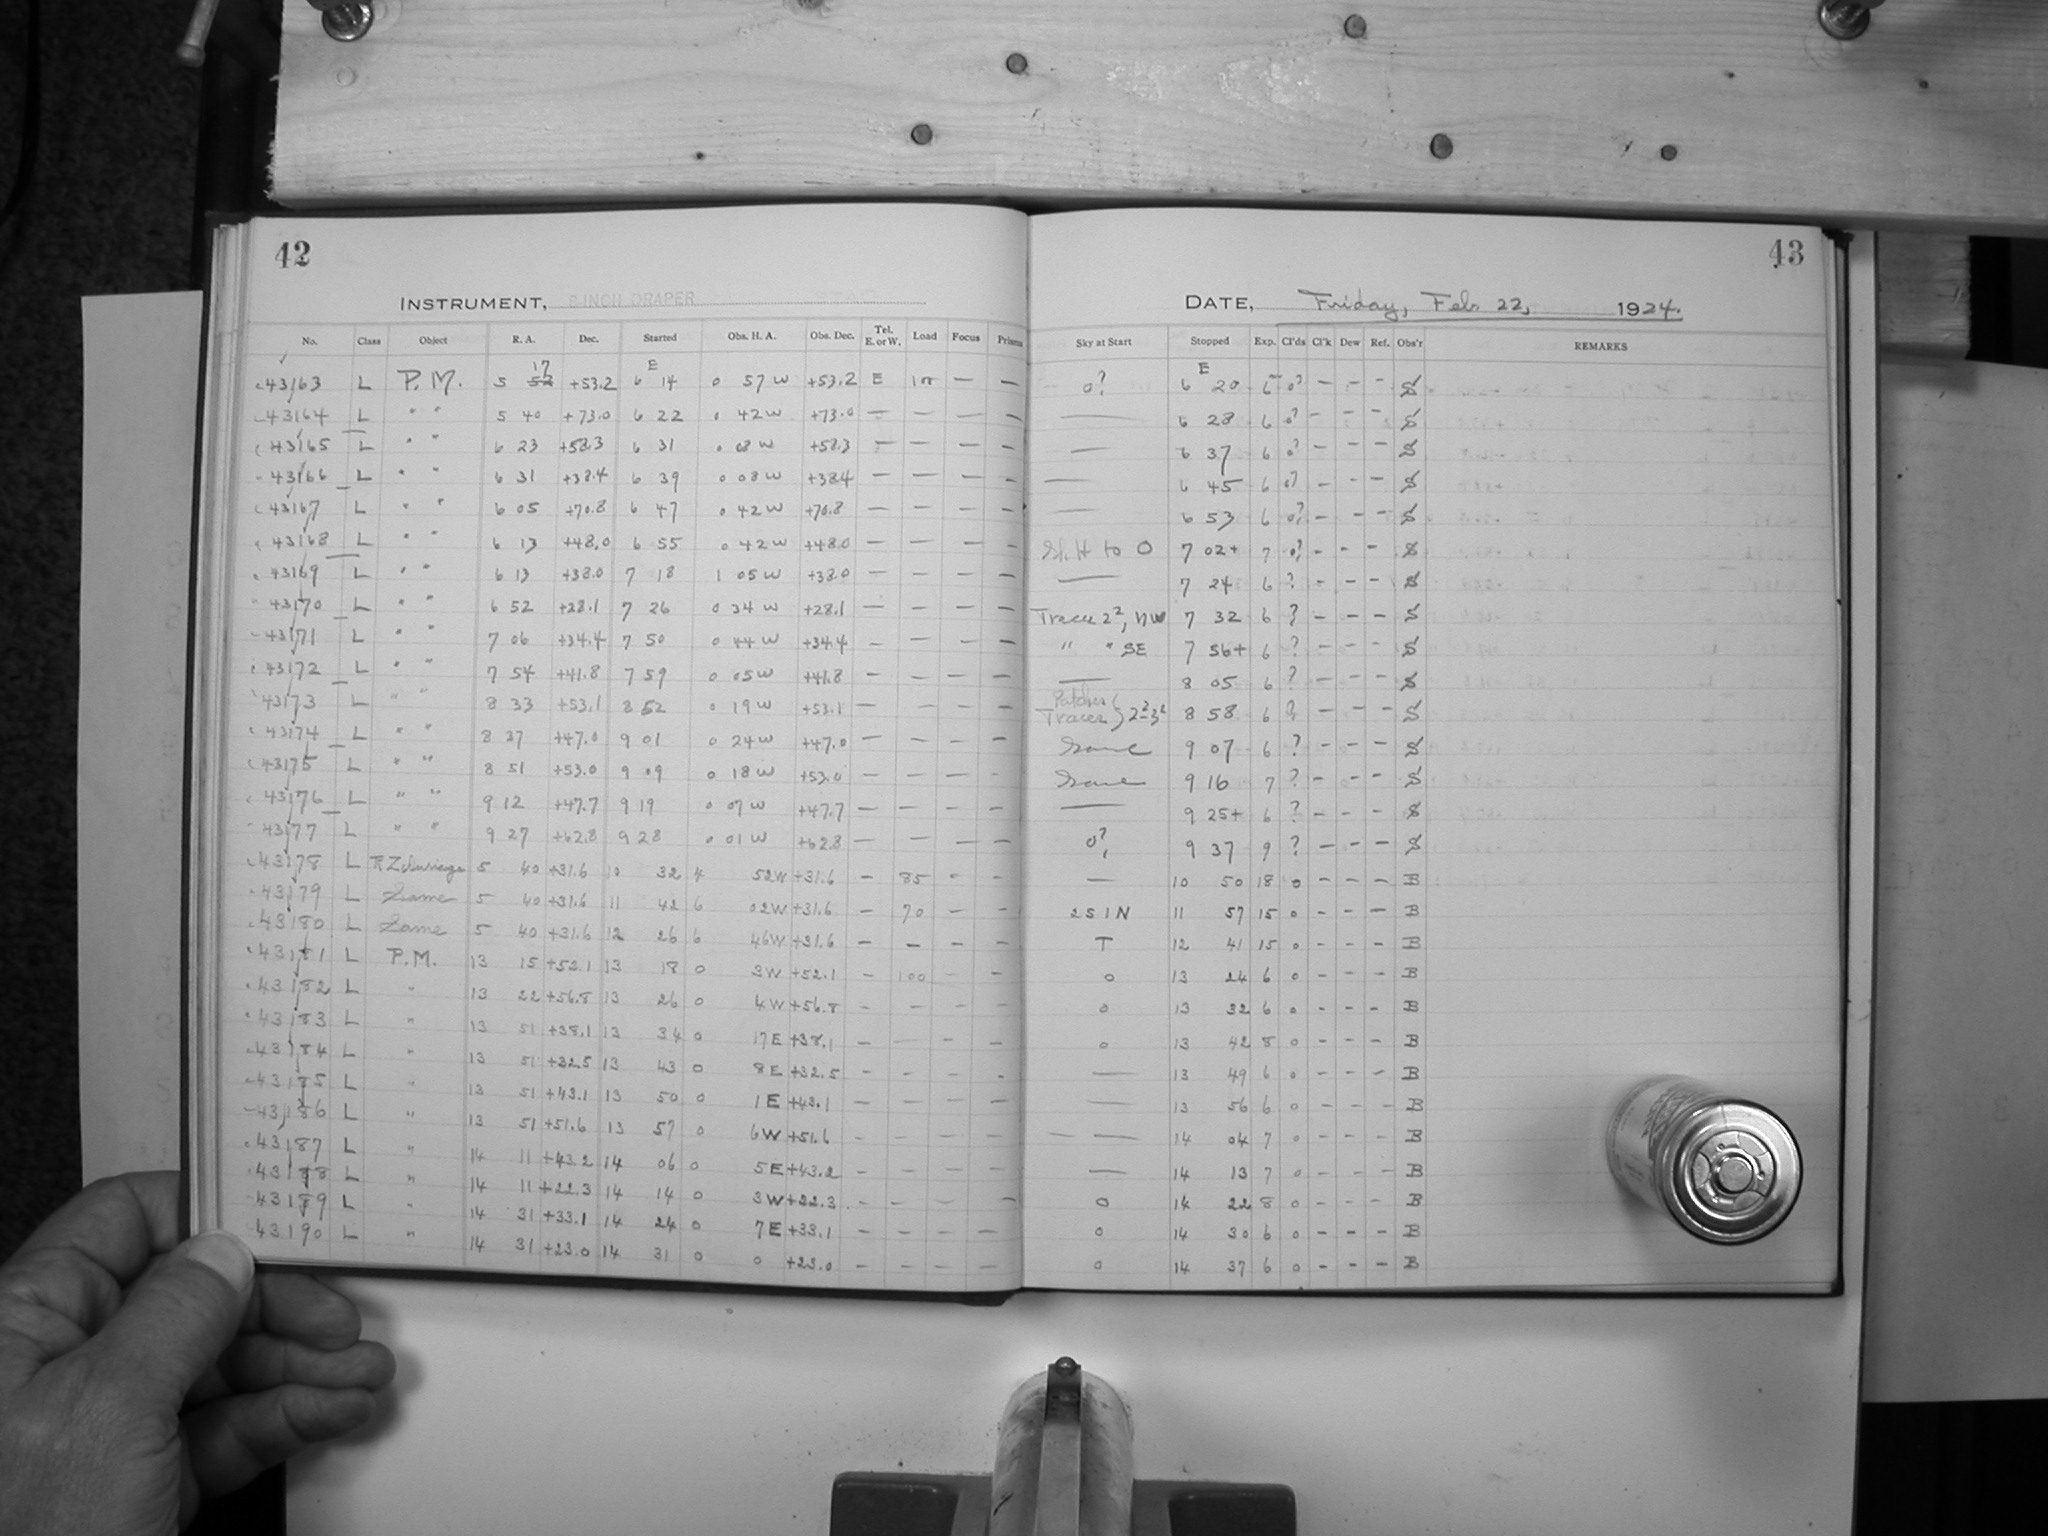 42
43
INSTRUMENT, 8-INCH DRAPER
DATE, Friday, Feb. 22, 1924.
No. Class Object R. A. Dec. Started Obs. H. A. Obs. Dec. Tel. E. or W. Load Focus Sky at Start Stopped Exp. Cl'ds Cl'k Dew Ref. Obs'r REMARKS
17 E E
43163 L P. M. 5 52 +53.2 6 14 0 57 W +53.2 E — — 0? 6 20 6 0? — — — S
43164 L " " 5 40 +73.0 6 22 0 42 W +73.0 — — — — — 6 28 6 0? — — — S
43165 L " " 6 23 +58.3 6 31 0 08 W +58.3 — — — — — 6 37 6 0? — — — S
43166 L " " 6 31 +38.4 6 39 0 08 W +38.4 — — — — — 6 45 6 0? — — — S
43167 L " " 6 05 +70.8 6 47 0 42 W +70.8 — — — — — 6 53 6 0? — — — S
43168 L " " 6 13 +48.0 6 55 0 42 W +48.0 — — — — Sl. H to O 7 02+ 7 0? — — — S
43169 L " " 6 13 +38.0 7 18 1 05 W +38.0 — — — — — 7 24 6 ? — — — S
43170 L " " 6 52 +28.1 7 26 0 34 W +28.1 — — — — Traces 2², NW 7 32 6 ? — — — S
43171 L " " 7 06 +34.4 7 50 0 44 W +34.4 — — — — " " SE 7 56+ 6 ? — — — S
43172 L " " 7 54 +41.8 7 59 0 05 W +41.8 — — — — — 8 05 6 ? — — — S
43173 L " " 8 33 +53.1 8 52 0 19 W +53.1 — — — — Patches Traces } 2²-3² 8 58 6 ? — — — S
43174 L " " 8 37 +47.0 9 01 0 24 W +47.0 — — — — Same 9 07 6 ? — — — S
43175 L " " 8 51 +53.0 9 09 0 18 W +53.0 — — — — Same 9 16 7 ? — — — S
43176 L " " 9 12 +47.7 9 19 0 07 W +47.7 — — — — — 9 25+ 6 ? — — — S
43177 L " " 9 27 +62.8 9 28 0 01 W +62.8 — — — — 0? 9 37 9 ? — — — S
43178 L 5 40 +31.6 10 32 4 52 W +31.6 — 85 — — — 10 50 18 0 — — — B
43179 L Same 5 40 +31.6 11 42 6 02 W +31.6 — 70 — — 2 S 1 N 11 57 15 0 — — — B
43180 L Same 5 40 +31.6 12 26 6 46 W +31.6 — — — — T 12 41 15 0 — — — B
43181 L P.M. 13 15 +52.1 13 18 0 3 W +52.1 — 100 — — 0 13 24 6 0 — — — B
43182 L " 13 22 +56.8 13 26 0 4 W +56.8 — — — — 0 13 32 6 0 — — — B
43183 L " 13 51 +38.1 13 34 0 17 E +38.1 — — — — 0 13 42 8 0 — — — B
43184 L " 13 51 +32.5 13 43 0 8 E +32.5 — — — — — 13 49 6 0 — — — B
43185 L " 13 51 +43.1 13 50 0 1 E +43.1 — — — — — 13 56 6 0 — — — B
43186 L " 13 51 +51.6 13 57 0 6 W +51.6 — — — — — 14 04 7 0 — — — B
43187 L " 14 11 +43.2 14 06 0 5 E +43.2 — — — — — 14 13 7 0 — — — B
43188 L " 14 11 +22.3 14 14 0 3 W +22.3 — — — — 0 14 22 8 0 — — — B
43189 L " 14 31 +33.1 14 24 0 7 E +33.1 — — — — 0 14 30 6 0 — — — B
43190 L " 14 31 +23.0 14 31 0 0 +23.0 — — — — 0 14 37 6 0 — — — B